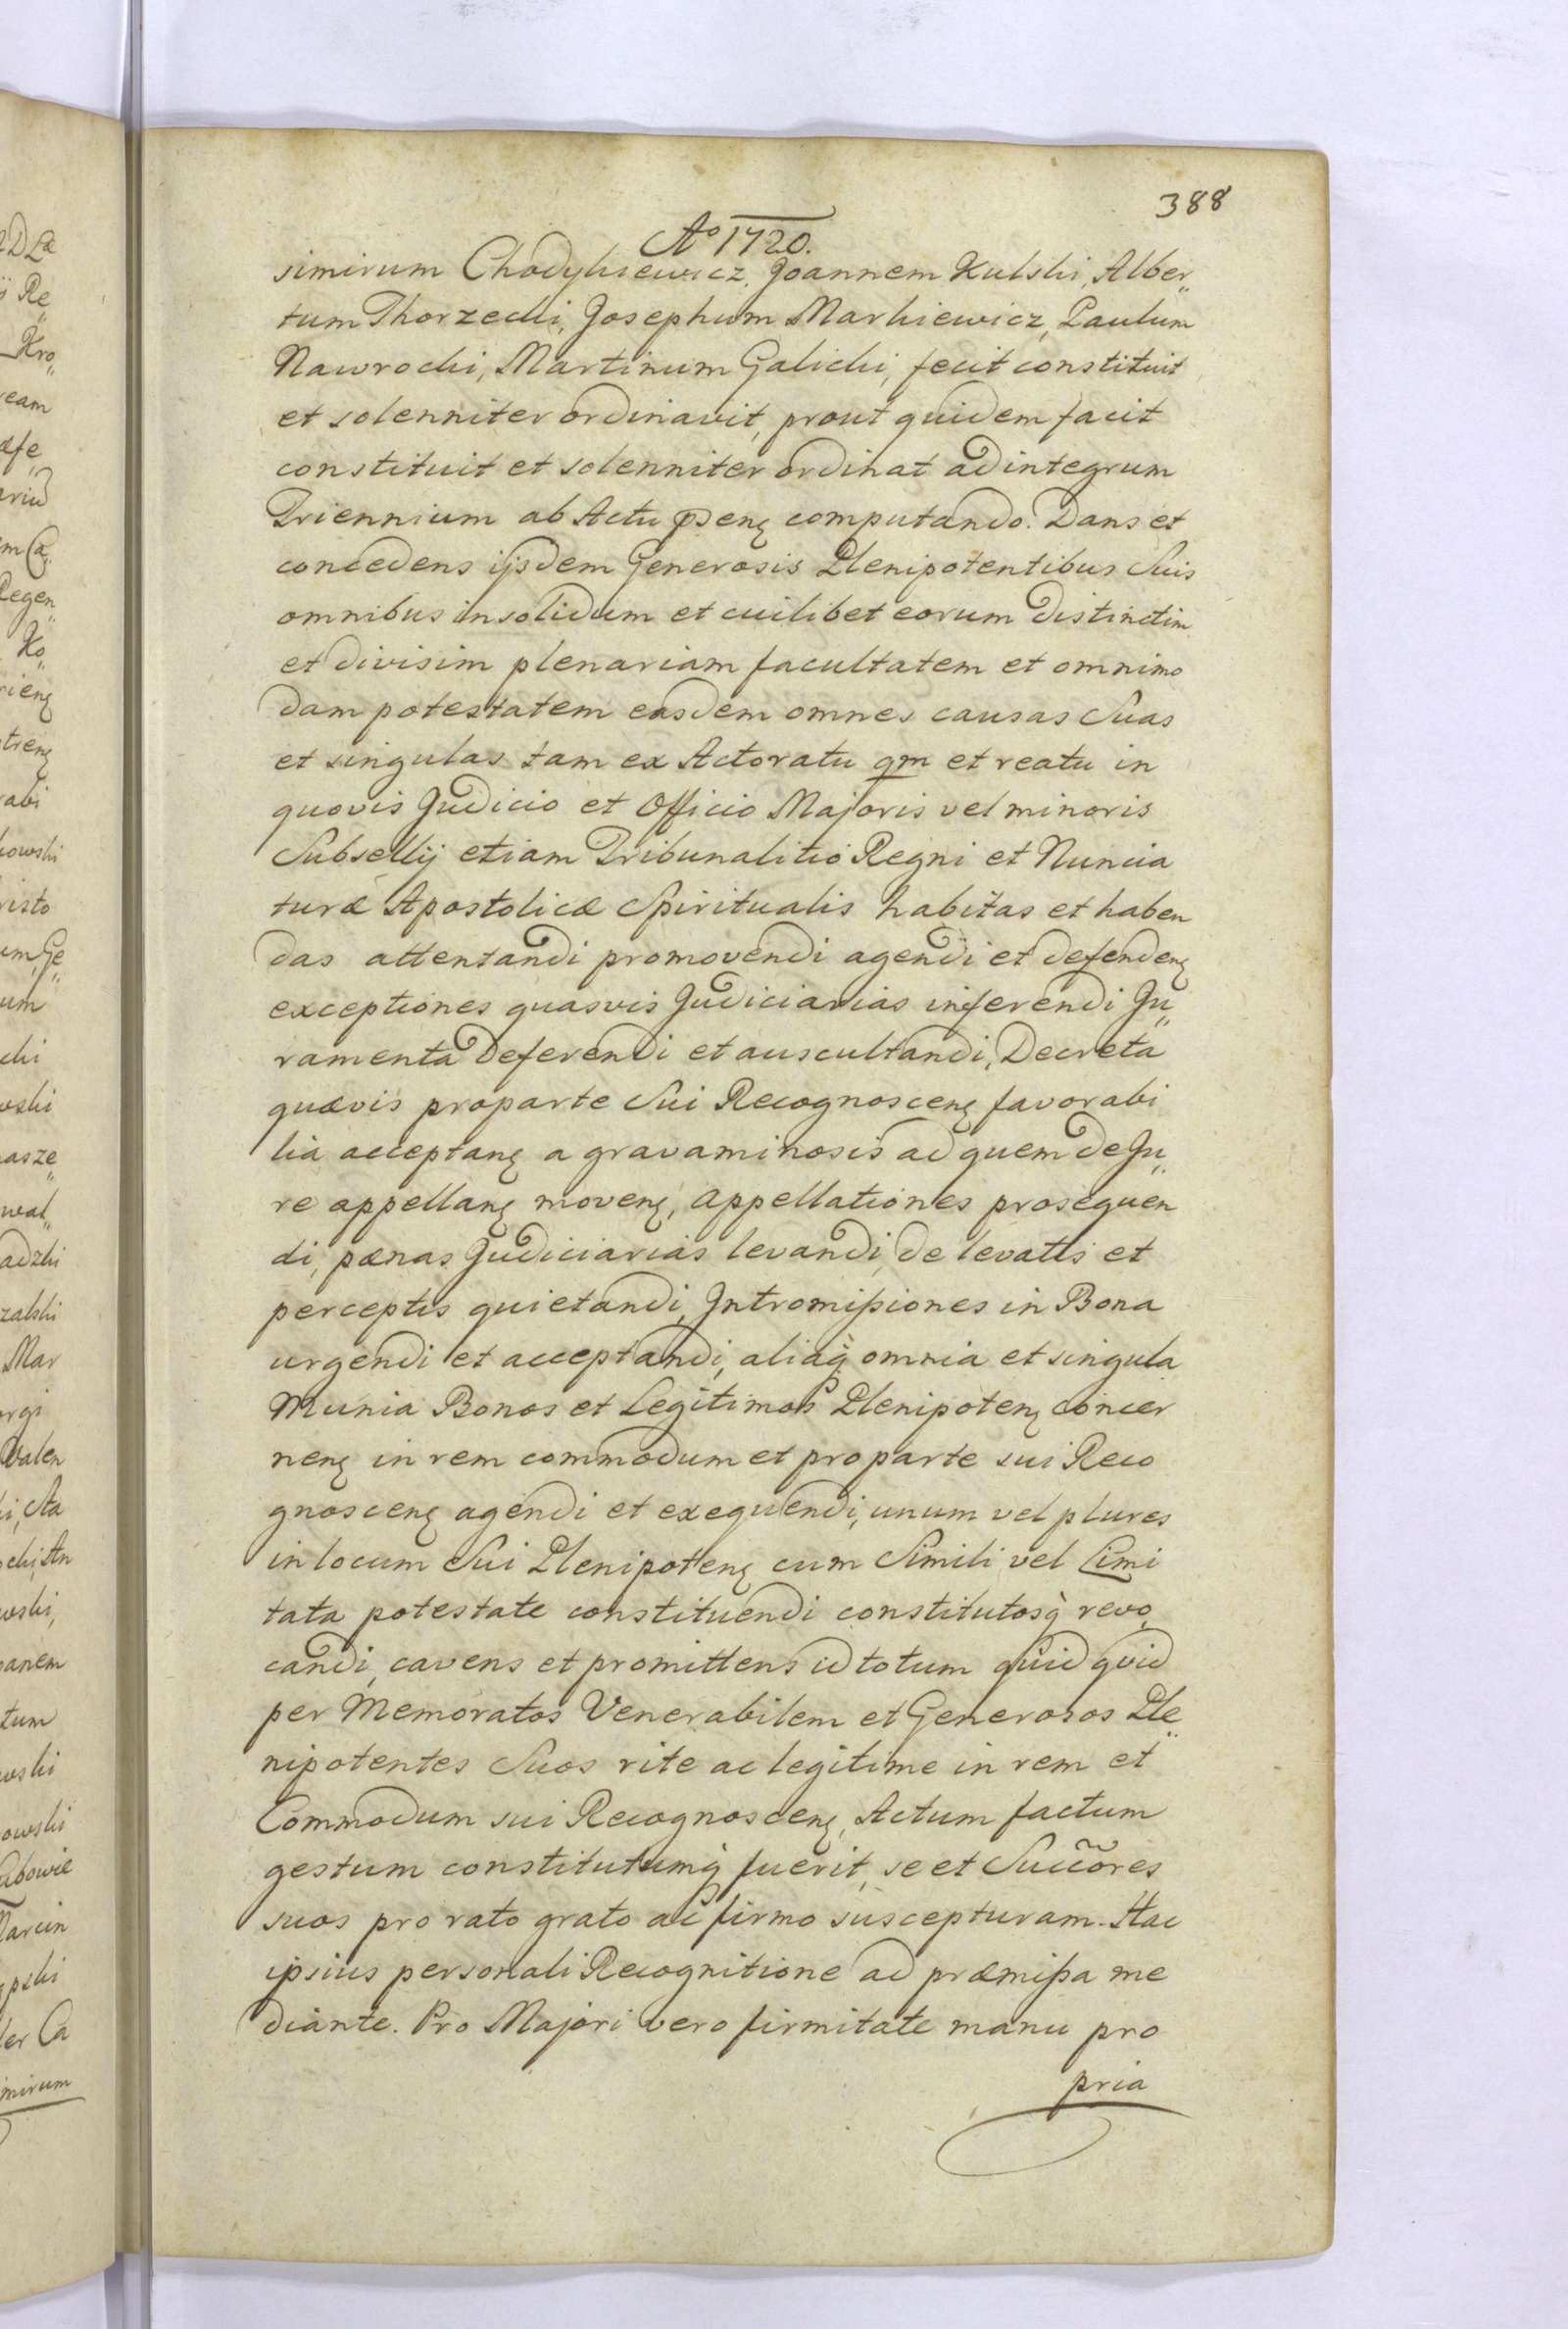 388
Aº 1720.
simirum Chodykiewicz, Joannem Kulski, Alber„
tum Thorzecki, Josephum Markiewicz, Paulum
Nawrocki, Martinum Galicki, fecit constituit
et solenniter ordinavit, prout quidem facit
constituit et solenniter ordinat ad integrum
Triennium ab Actu pseng computando. Dans et
concedens ijsdem Generosis Plenipotentibus Suis
omnibus insolidum et cuilibet eorum distinctim
et divisim plenariam facultatem et omnimo
dam potestatem easdem omnes causas Suas
et singulas tam ex Actoratu qm et reatu in
quovis Judicio et Officio Majoris vel minoris
Subsellij etiam Tribunalitio Regni et Nuncia
turæ Apostolicæ Spiritualis habitas et haben
das attentandi promovendi agendi et defendeng
exceptiones quasvis Judiciarias inferendi Ju„
ramenta deferendi et auscultandi, Decreta
quævis proparte Sui Recognosceng favorabi
lia acceptang a gravaminosis ad quem de Ju„
re appellang moveng, appellationes prosequen
di, pænas Judiciarias levandi, de levatis et
perceptis quietandi, Intromißiones in Bona
urgendi et acceptandi, aliaq̀ omnia et singula
Munia Bonos et Legitimos Plenipoteng concer
neng in rem commodum et pro parte sui Reco
gnosceng agendi et exequendi, unum vel plures
in locum Sui Plenipoteng cum Simili vel Limi
tata potestate constituendi constitutosq̀ revo„
candi, cavens et promittens id totum quid quid
per Memoratos Venerabilem et Generosos Ple„
nipotentes Suos rite ac legitime in rem et
Commodum sui Recognosceng, Actum factum
gestum constitutumq̀ fuerit, se et Succõres
suos pro rato grato ac firmo suscepturam. Hac
ipsius personali Recognitione ad præmißa me
diante. Pro Majori vero firmitate manu pro
pria